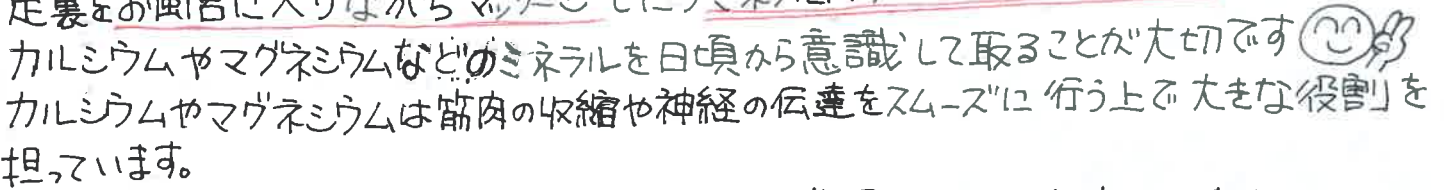 足裏をお風呂に入りながらマッサージしたり
カルシウムやマグネシウムなどのミネラルを日頃から意識して取ることが大切です
カルシウムやマグネシウムは筋肉の収縮や神経の伝達をスムーズに行う上で大きな役割を
担っています。